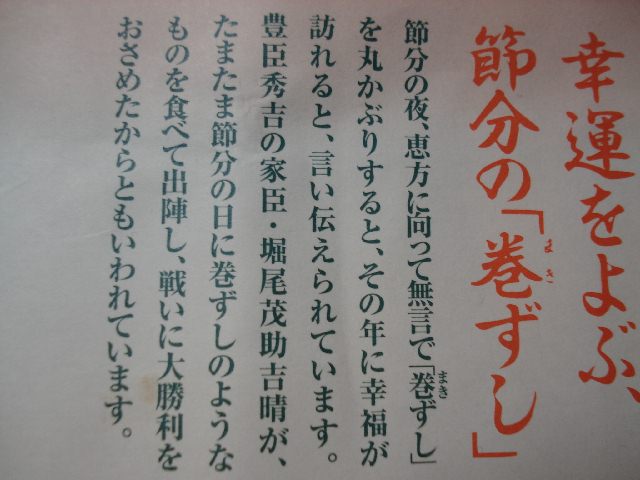 幸運をよぶ、
節分の「巻ずし」
節分の夜、恵方に向って無言で「巻ずし」
を丸かぶりすると、その年に幸福が
訪れると、言い伝えられています。
豊臣秀吉の家臣・堀尾茂助吉晴が、
たまたま節分の日に巻ずしのような
ものを食べて出陣し、戦いに大勝利を
おさめたからともいわれています。